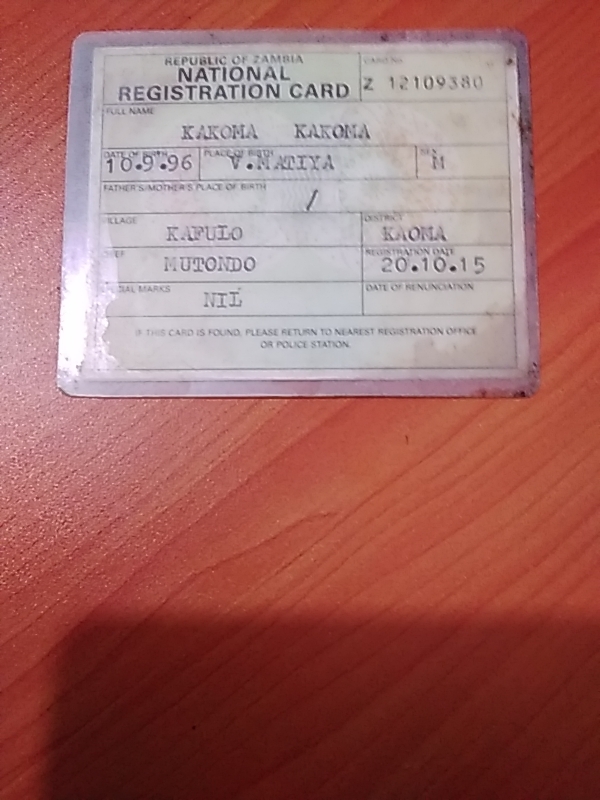 REPUBLIC OF ZAMBIA
NATIONAL
REGISTRATION CARD
CARD No.
Z 12109380
FULL NAME
KAKOMA KAKOMA
DATE OF BIRTH
10.9.96
PLACE OF BIRTH
V.MATIYA
SEX
M
FATHER'S/MOTHER'S PLACE OF BIRTH
/
VILLAGE
KAFULO
DISTRICT
KAOMA
CHIEF
MUTONDO
REGISTRATION DATE
20.10.15
SPECIAL MARKS
NIL
DATE OF RENUNCIATION
IF THIS CARD IS FOUND, PLEASE RETURN TO NEAREST REGISTRATION OFFICE
OR POLICE STATION.